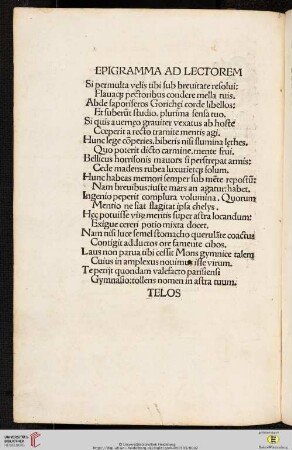 EPIGRAMMA AD LECTOREM
Si permulta velis tibi sub breuitate resolui:
Flauaq; pectoribus condere mella tuis.
Abde saporiferos Gorichei corde libellos:
Et suberũt studio, plurima sensa tuo.
Si quis auerno grauiter vexatus ab hoste
Cœperit a recto tramite mentis agi.
Hunc lege cõperies, biberis nisi flumina lethes.
Quo poterit dicto carmine, mente frui.
Bellicus horrisonis mauors si perstrepat armis:
Cede madens rubea luxurietq; solum.
Hunc habeas memori semper sub mẽte repostũ:
Nam breuibus: iuste mars an agatur: habet.
Ingenio peperit complura volumina. Quorum
Mentio ne fiat flagitat ipsa chelys.
Hec potuisse viri mentis super astra locandum:
Exigue cereri potio mixta docet.
Nam nisi luce semel stomacho querulãte coactus
Contigit adductos ore famente cibos.
Laus non parua tibi cessit Mons gymnice talem
Cuius in amplexus nouimus isse virum.
Te petijt quondam valefacto parisensi
Gymnasio: tollens nomen in astra tuum.
TELOS
UNIVERSITÄTS-
BIBLIOTHEK
HEIDELBERG
© Universitätsbibliothek Heidelberg